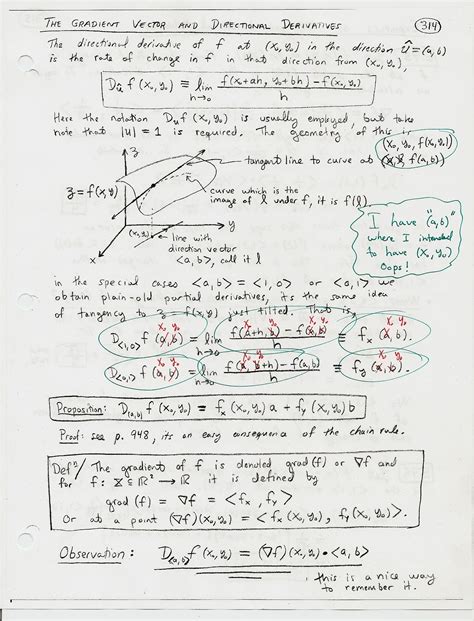 THE GRADIENT VECTOR AND DIRECTIONAL DERIVATIVES
314
The directional derivative of f at (x₀, y₀) in the direction û = ⟨a, b⟩
is the rate of change in f in that direction from (x₀, y₀),
D_û f(x₀, y₀) ≡ lim_{h→0} (f(x₀+ah, y₀+bh) − f(x₀, y₀))/h
Here the notation D_u f(x₀, y₀) is usually employed, but take
note that |u| = 1 is required. The geometry of this is
(x₀, y₀, f(x₀, y₀))
tangent line to curve at (a, b, f(a, b))
z = f(x, y)
curve which is the
image of l under f, it is f(l).
z
y
x
(x₀, y₀)
line with
direction vector
<a, b>, call it l
I have "(a, b)"
where I intended
to have (x₀, y₀)
Oops!
in the special cases <a, b> = <1, 0> or <0, 1> we
obtain plain-old partial derivatives, its the same idea
of tangency to z = f(x, y) just tilted. That is,
x₀ y₀ x₀ y₀ x₀ y₀ x₀ y₀
D_<1,0> f(a, b) = lim_{h→0} (f(a+h, b) − f(a, b))/h ≡ f_x(a, b).
x₀ y₀ x₀ y₀ x₀ y₀
D_<0,1> f(a, b) = lim_{h→0} (f(a, b+h) − f(a, b))/h ≡ f_y(a, b).
Proposition: D_<a,b> f(x₀, y₀) = f_x(x₀, y₀) a + f_y(x₀, y₀) b
Proof: see p. 948, its an easy consequence of the chain rule.
Defⁿ/ The gradient of f is denoted grad(f) or ∇f and
for f: ⊆ ℝ² → ℝ it is defined by
grad(f) = ∇f = <f_x, f_y>
Or at a point (∇f)(x₀, y₀) = <f_x(x₀, y₀), f_y(x₀, y₀)>.
Observation: D_<a,b> f(x₀, y₀) = (∇f)(x₀, y₀) • <a, b>
this is a nice way
to remember it.